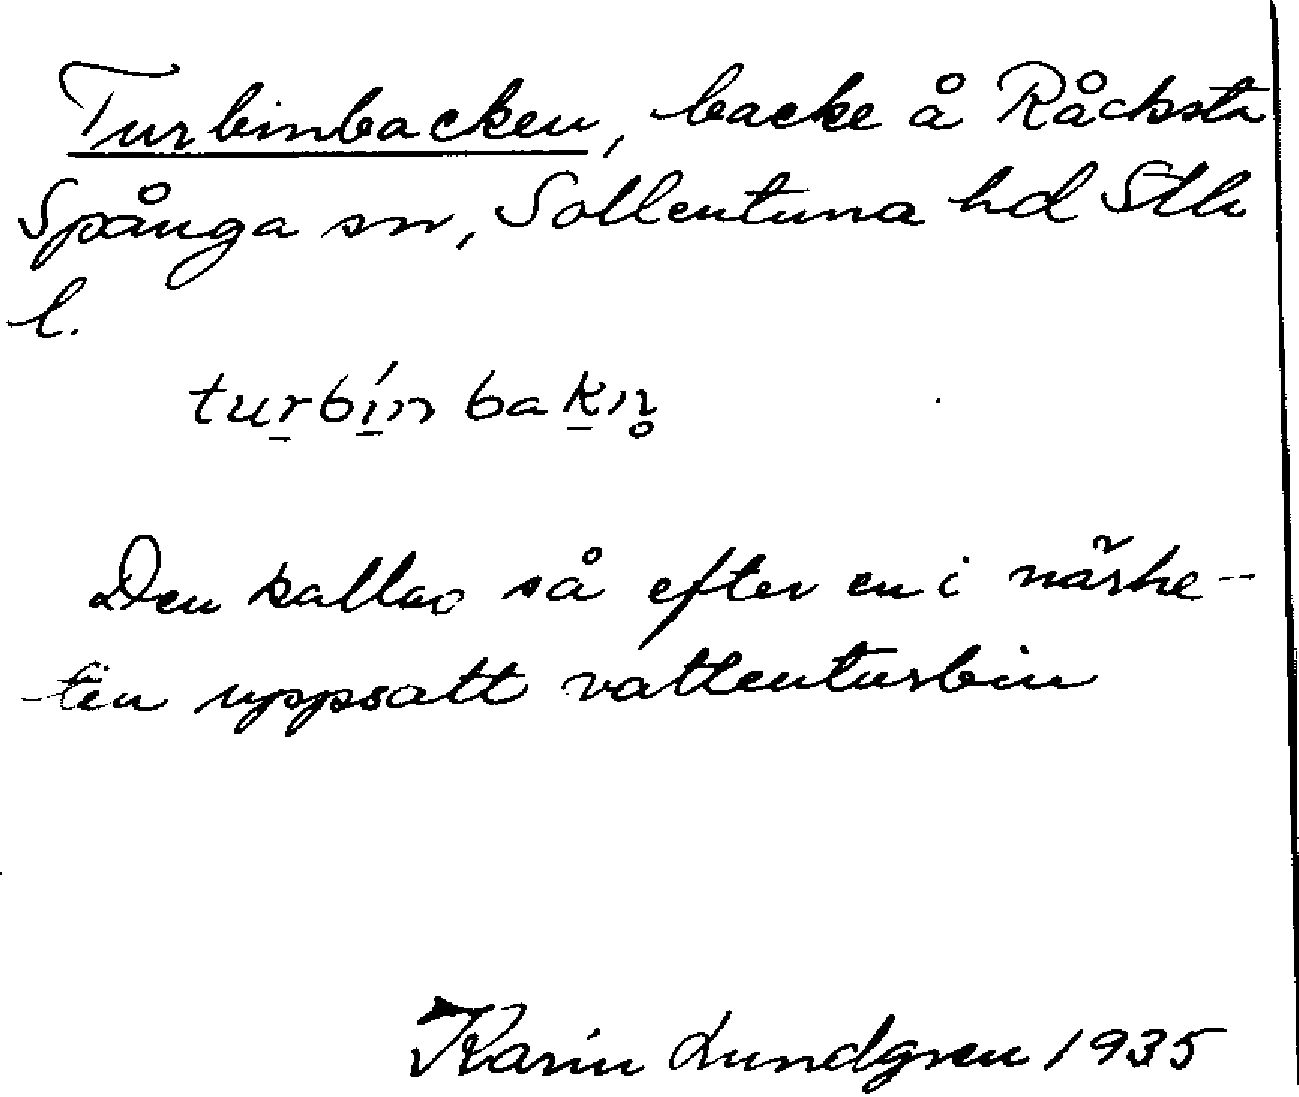 Turbinbacken, backe å Råcksta
Spånga sn, Sollentuna hd Sthl
l.
turbín bakn̥
Den kallas så efter en i närhe-
-ten uppsatt vattenturbin
Karin Lundgren 1935